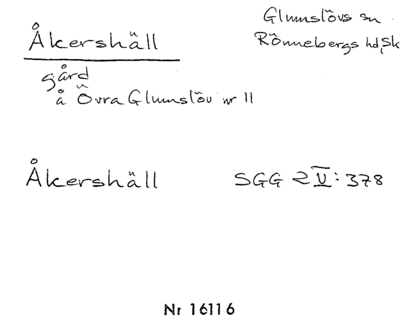 Åkershäll
Glumslövs sn
Rönnebergs hd, Sk
gård
å Övra Glumslöv nr 11
Åkershäll SGG 2 V: 378
Nr 16116